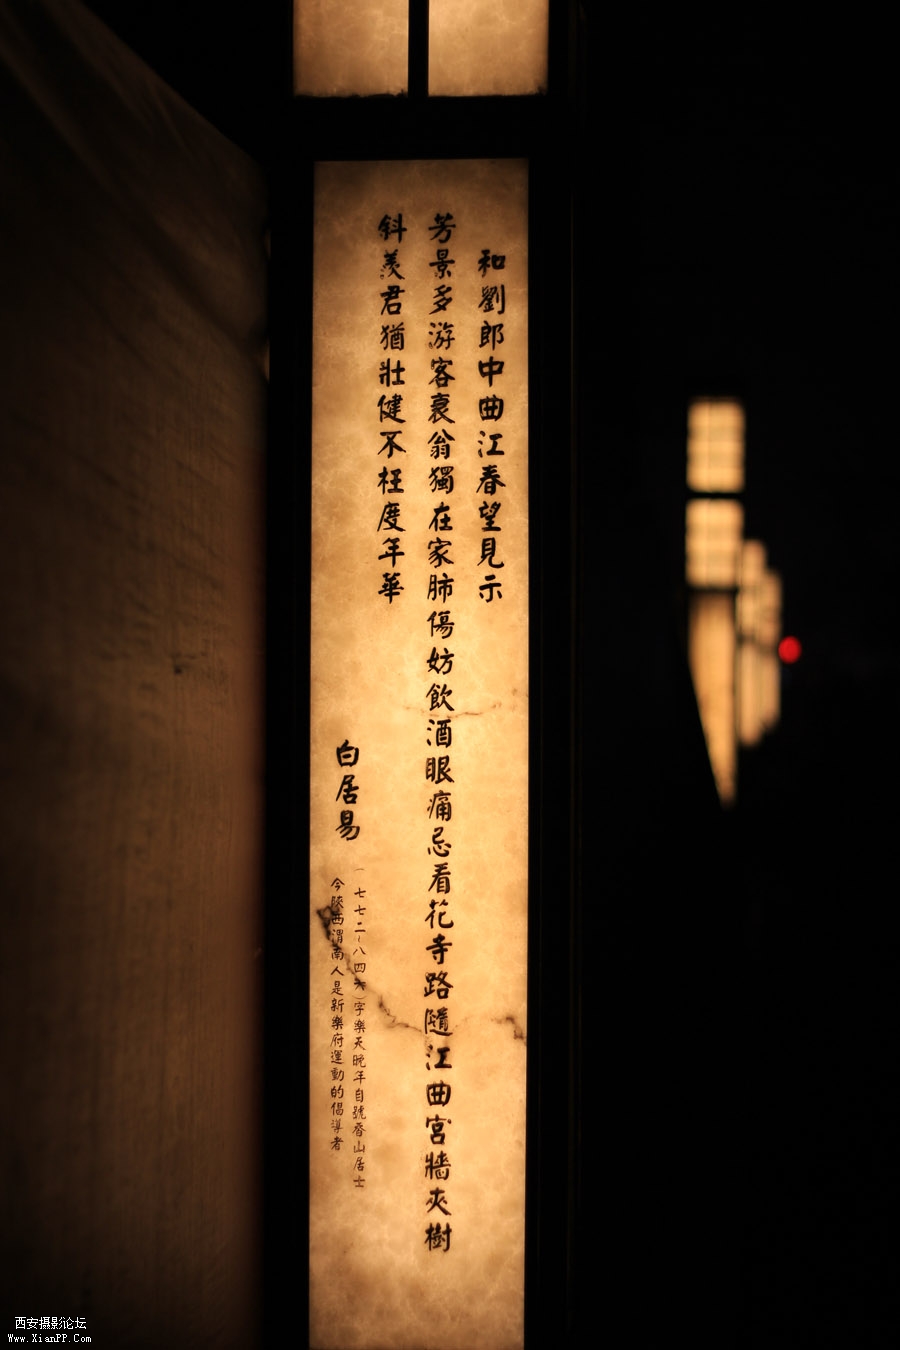 和劉郎中曲江春望見示
芳景多游客衰翁獨在家肺傷妨飲酒眼痛忌看花寺路隨江曲宮牆夾樹
斜羨君猶壯健不枉度年華
白居易
（七七二~八四六）字樂天晚年自號香山居士
今陝西渭南人是新樂府運動的倡導者
西安摄影论坛
Www.XianPP.Com